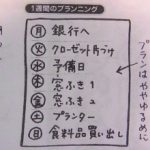 1週間のプランニング
月 銀行へ
火 クローゼット片づけ
水 予備日
木 窓ふき1
金 窓ふき2
土 プランター
日 食料品買い出し
プランはややゆるめに